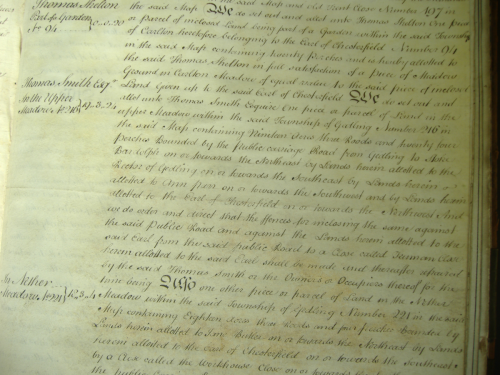 the said Map and old Inclosed Close Number 497 in
Thomas Shelton the said Map We do set out and allot unto Thomas Shelton One piece
Part of a Garden or parcel of inclosed Land being part of a Garden within the said Township
No 94 of Carlton heretofore belonging to the Earl of Chesterfield Number 94
in the said Map containing twenty Perches and is hereby allotted to
the said Thomas Shelton in full satisfaction of a Piece of Meadow
Ground in Carlton Meadow of equal value to the said piece of inclosed
Thomas Smith Esqr Land given up to the said Earl of Chesterfield We do set out and
In the Upper allot unto Thomas Smith Esquire One piece or parcel of Land in the
Meadow No 216 19.3.24 upper Meadow within the said Township of Gedling Number 216 in
the said Map containing Nineteen Acres three Roods and twenty four
Perches Bounded by the public carriage Road from Gedling to Stoke
Bardolph on or towards the Northeast by Lands herein allotted to the
Rector of Gedling on or towards the Southeast by Lands herein
allotted to Ann on or towards the Southwest and by Lands herein
allotted to the Earl of Chesterfield on or towards the Northwest And
we do order and direct that the fences for inclosing the same against
the said Public Road and against the Lands herein allotted to the
said Earl from the said public Road to a Close called
herein allotted to the said Earl shall be made and thereafter repaired
by the said Thomas Smith or the Owners or Occupiers thereof for the
In Nether time being Also one other piece or parcel of Land in the Nether
Meadow No 221 18.3.4 Meadow within the said Township of Gedling Number 221 in the said
Map containing Eighteen Acres three Roods and four Perches Bounded by
Lands herein allotted to on or towards the Northeast by Lands
herein allotted to the Earl of Chesterfield on or towards the Southeast
by a Close called the Workhouse Close on or towards the